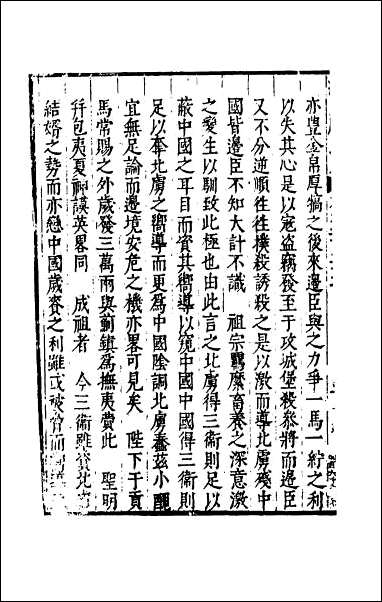 亦豊金帛厚犒之後來邊臣與之力爭一馬一紵之利
以失其心是以寇盜竊發至于攻城堡殺叅將而邊臣
又不分逆順徃徃撲殺誘殺之是以激而導北虜殘中
國皆邊臣不知大計不識　祖宗羈縻畜養之深意激
之憂生以馴致此極也由此言之北虜得三衛則足以
蔽中國之耳目而資其嚮導以窺中國中國得三衛則
足以奪北虜之嚮導而更爲中國陰詗北虜蠢茲小醜
宜無足論而邊境安危之機亦畧可見矣　陛下于貢
馬常賜之外歲發三萬兩與薊鎮爲撫夷費此　聖明
幷包夷夏神謨英畧同　成祖者　今三衛雖
結婚之勢而亦戀中國歲賚之利雖或被脅而